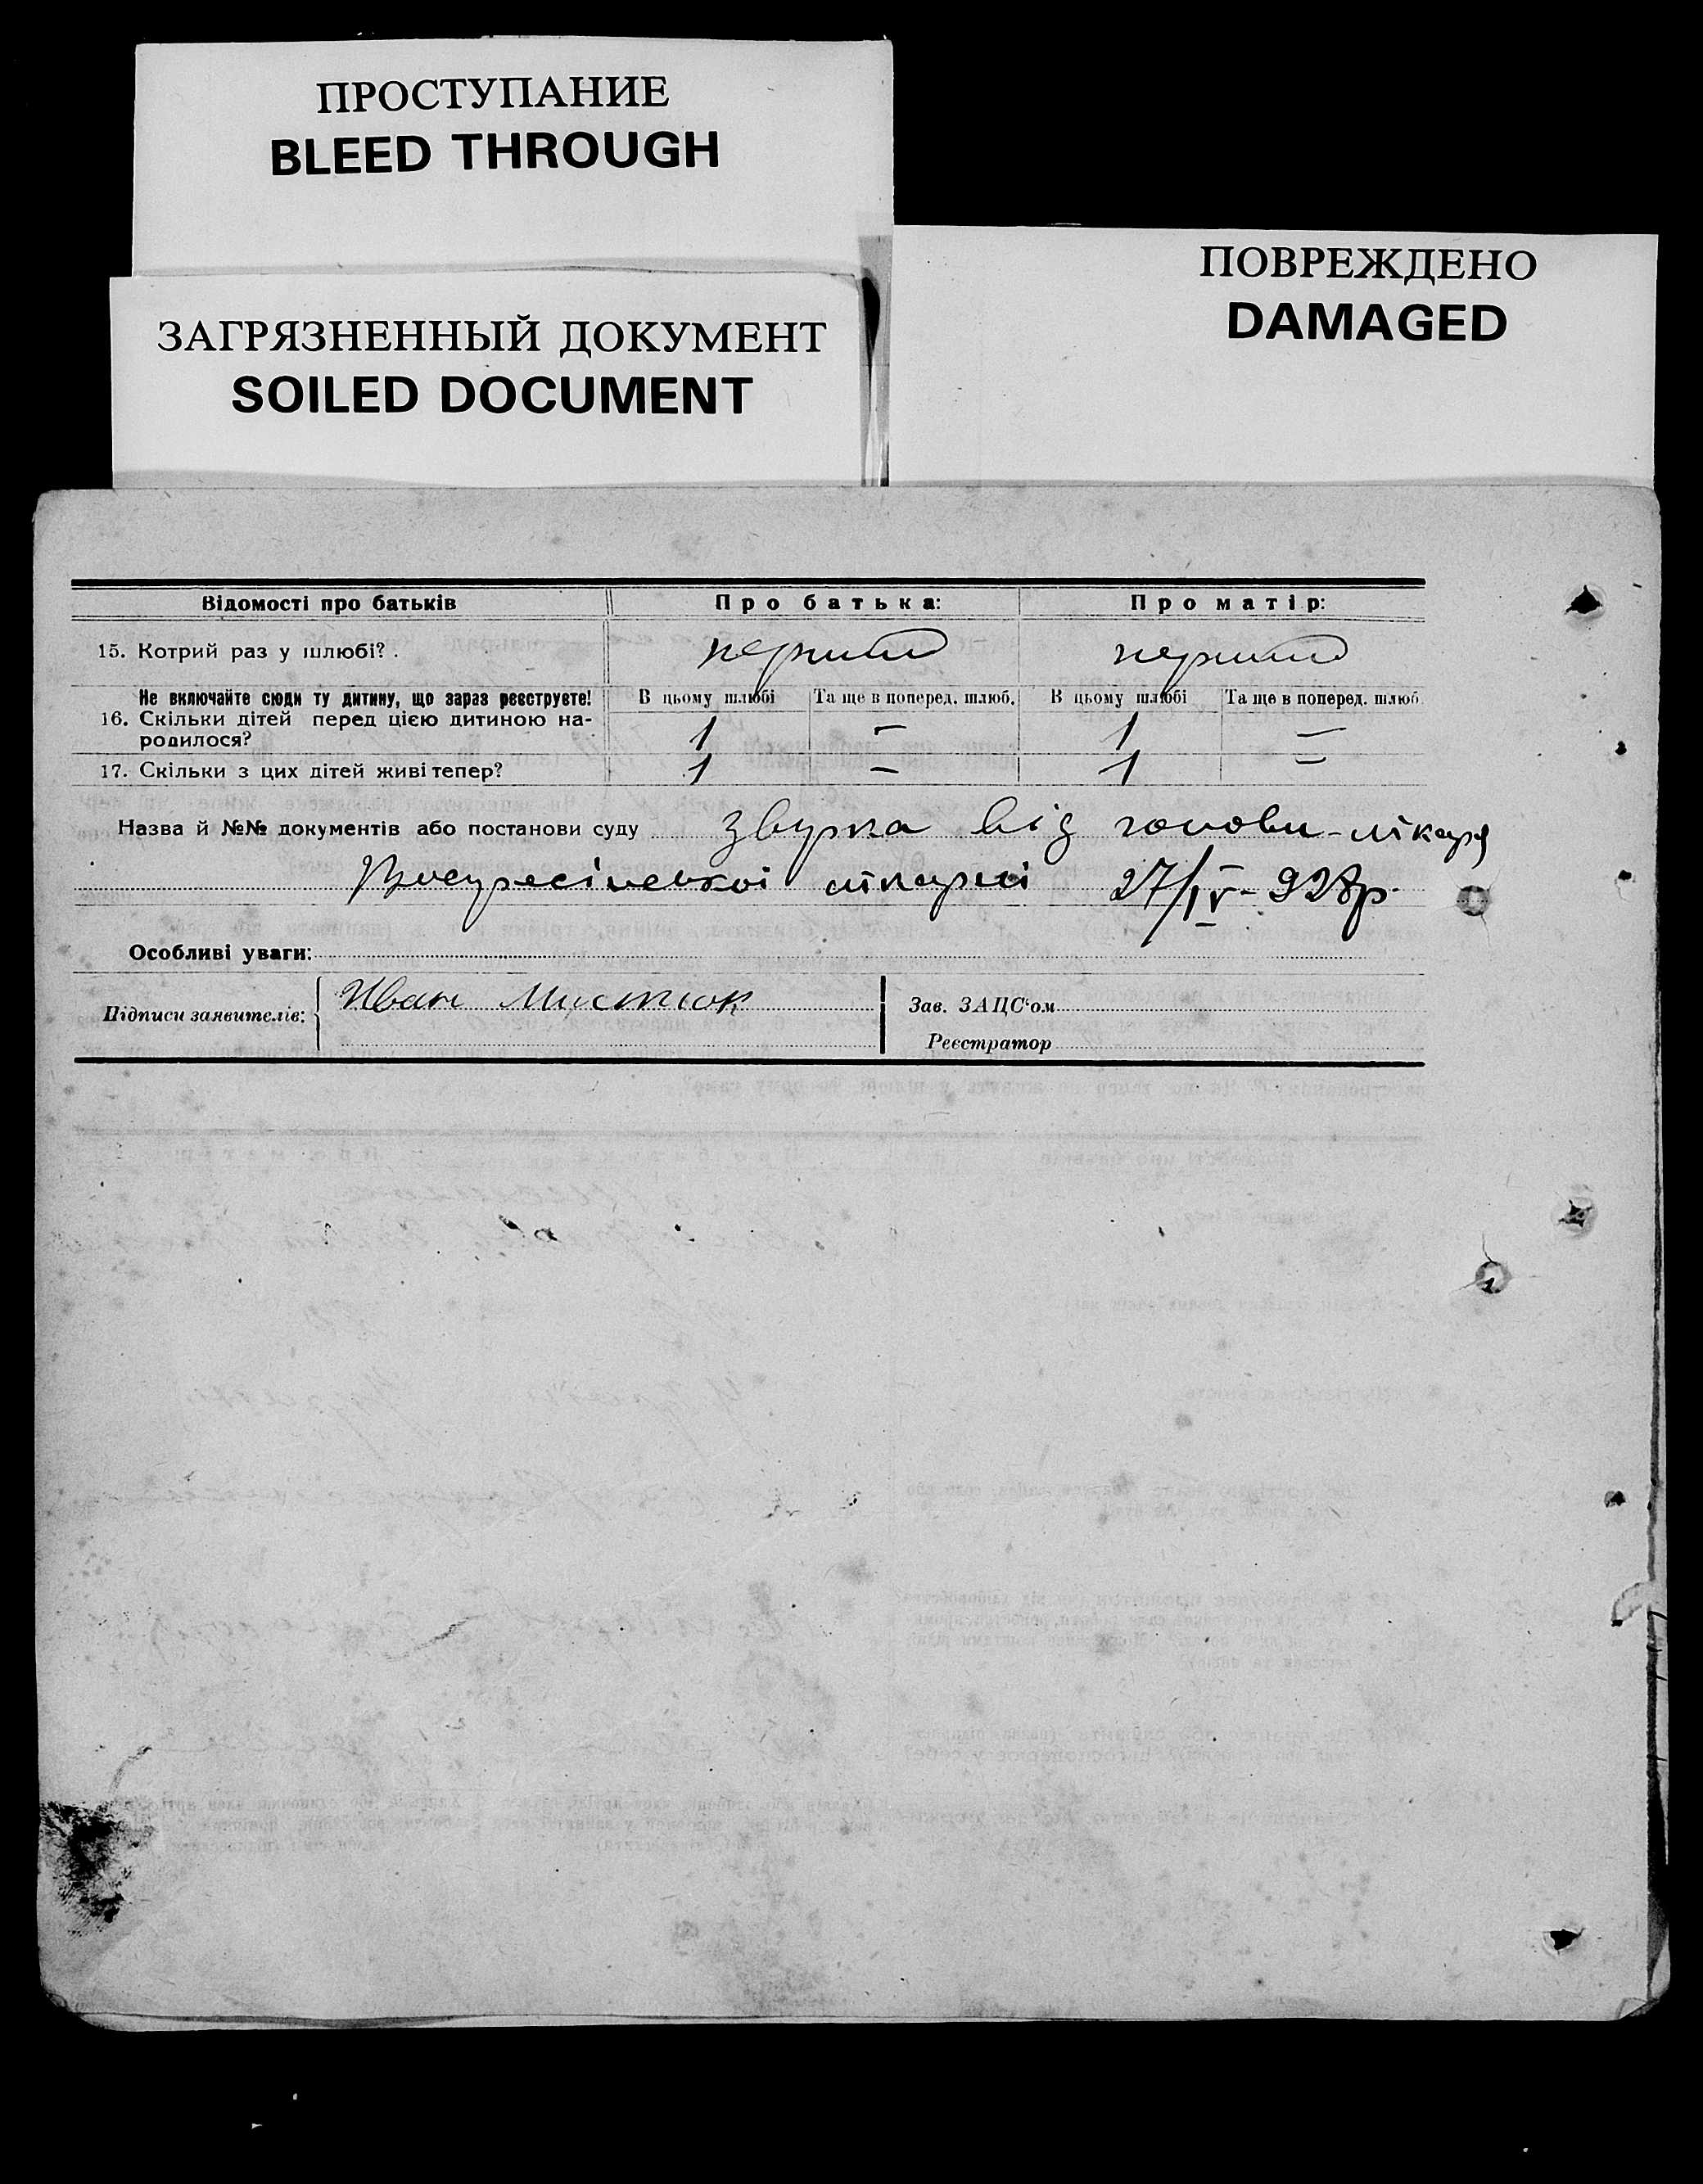 ПРОСТУПАНИЕ
BLEED THROUGH
ПОВРЕЖДЕНО
DAMAGED
ЗАГРЯЗНЕННЫЙ ДОКУМЕНТ
SOILED DOCUMENT
Відомості про батьків Про батька: Про матір:
15. Котрий раз у шлюбі? . перший перший
Не включайте сюди ту дитину, що зараз реєструєте! В цьому шлюбі Та ще в поперед. шлюб. В цьому шлюбі Та ще в поперед. шлюб
16. Скільки дітей перед цією дитиною на-
родилося? 1 — 1 —
17. Скільки з цих дітей живі тепер? 1 — 1 —
Назва й №№ документів або постанови суду від голови-лікаря
лікарні 27/IV-928р.
Особливі уваги:
Підписи заявителів: Иван Зав. ЗАЦС'ом
Реєстратор